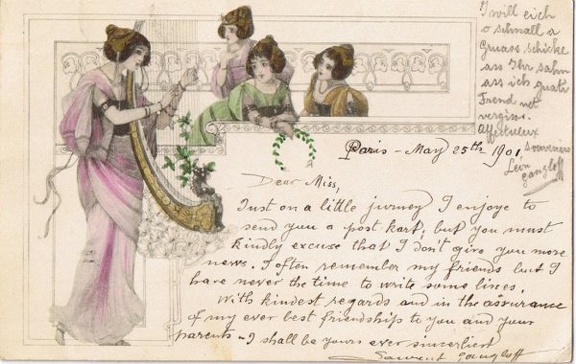 I will eich
o schnall a
Gruass schicke
ass Ihr sahn
ass ich guati
Freind net
vergiss.
Affectueux
souvenirs
Léon
Gangloff
Paris - May 25th 1901
Dear Miss,
Just on a little jurney I enjoye to
send you a post kart; but you must
kindly excuse that I don't give you more
news. I often remember my friends but I
have never the time to write some lines.
With kindest regards and in the assurance
of my ever best friendship to you and your
parents - I shall be yours ever sincerliest
Laurent Gangloff